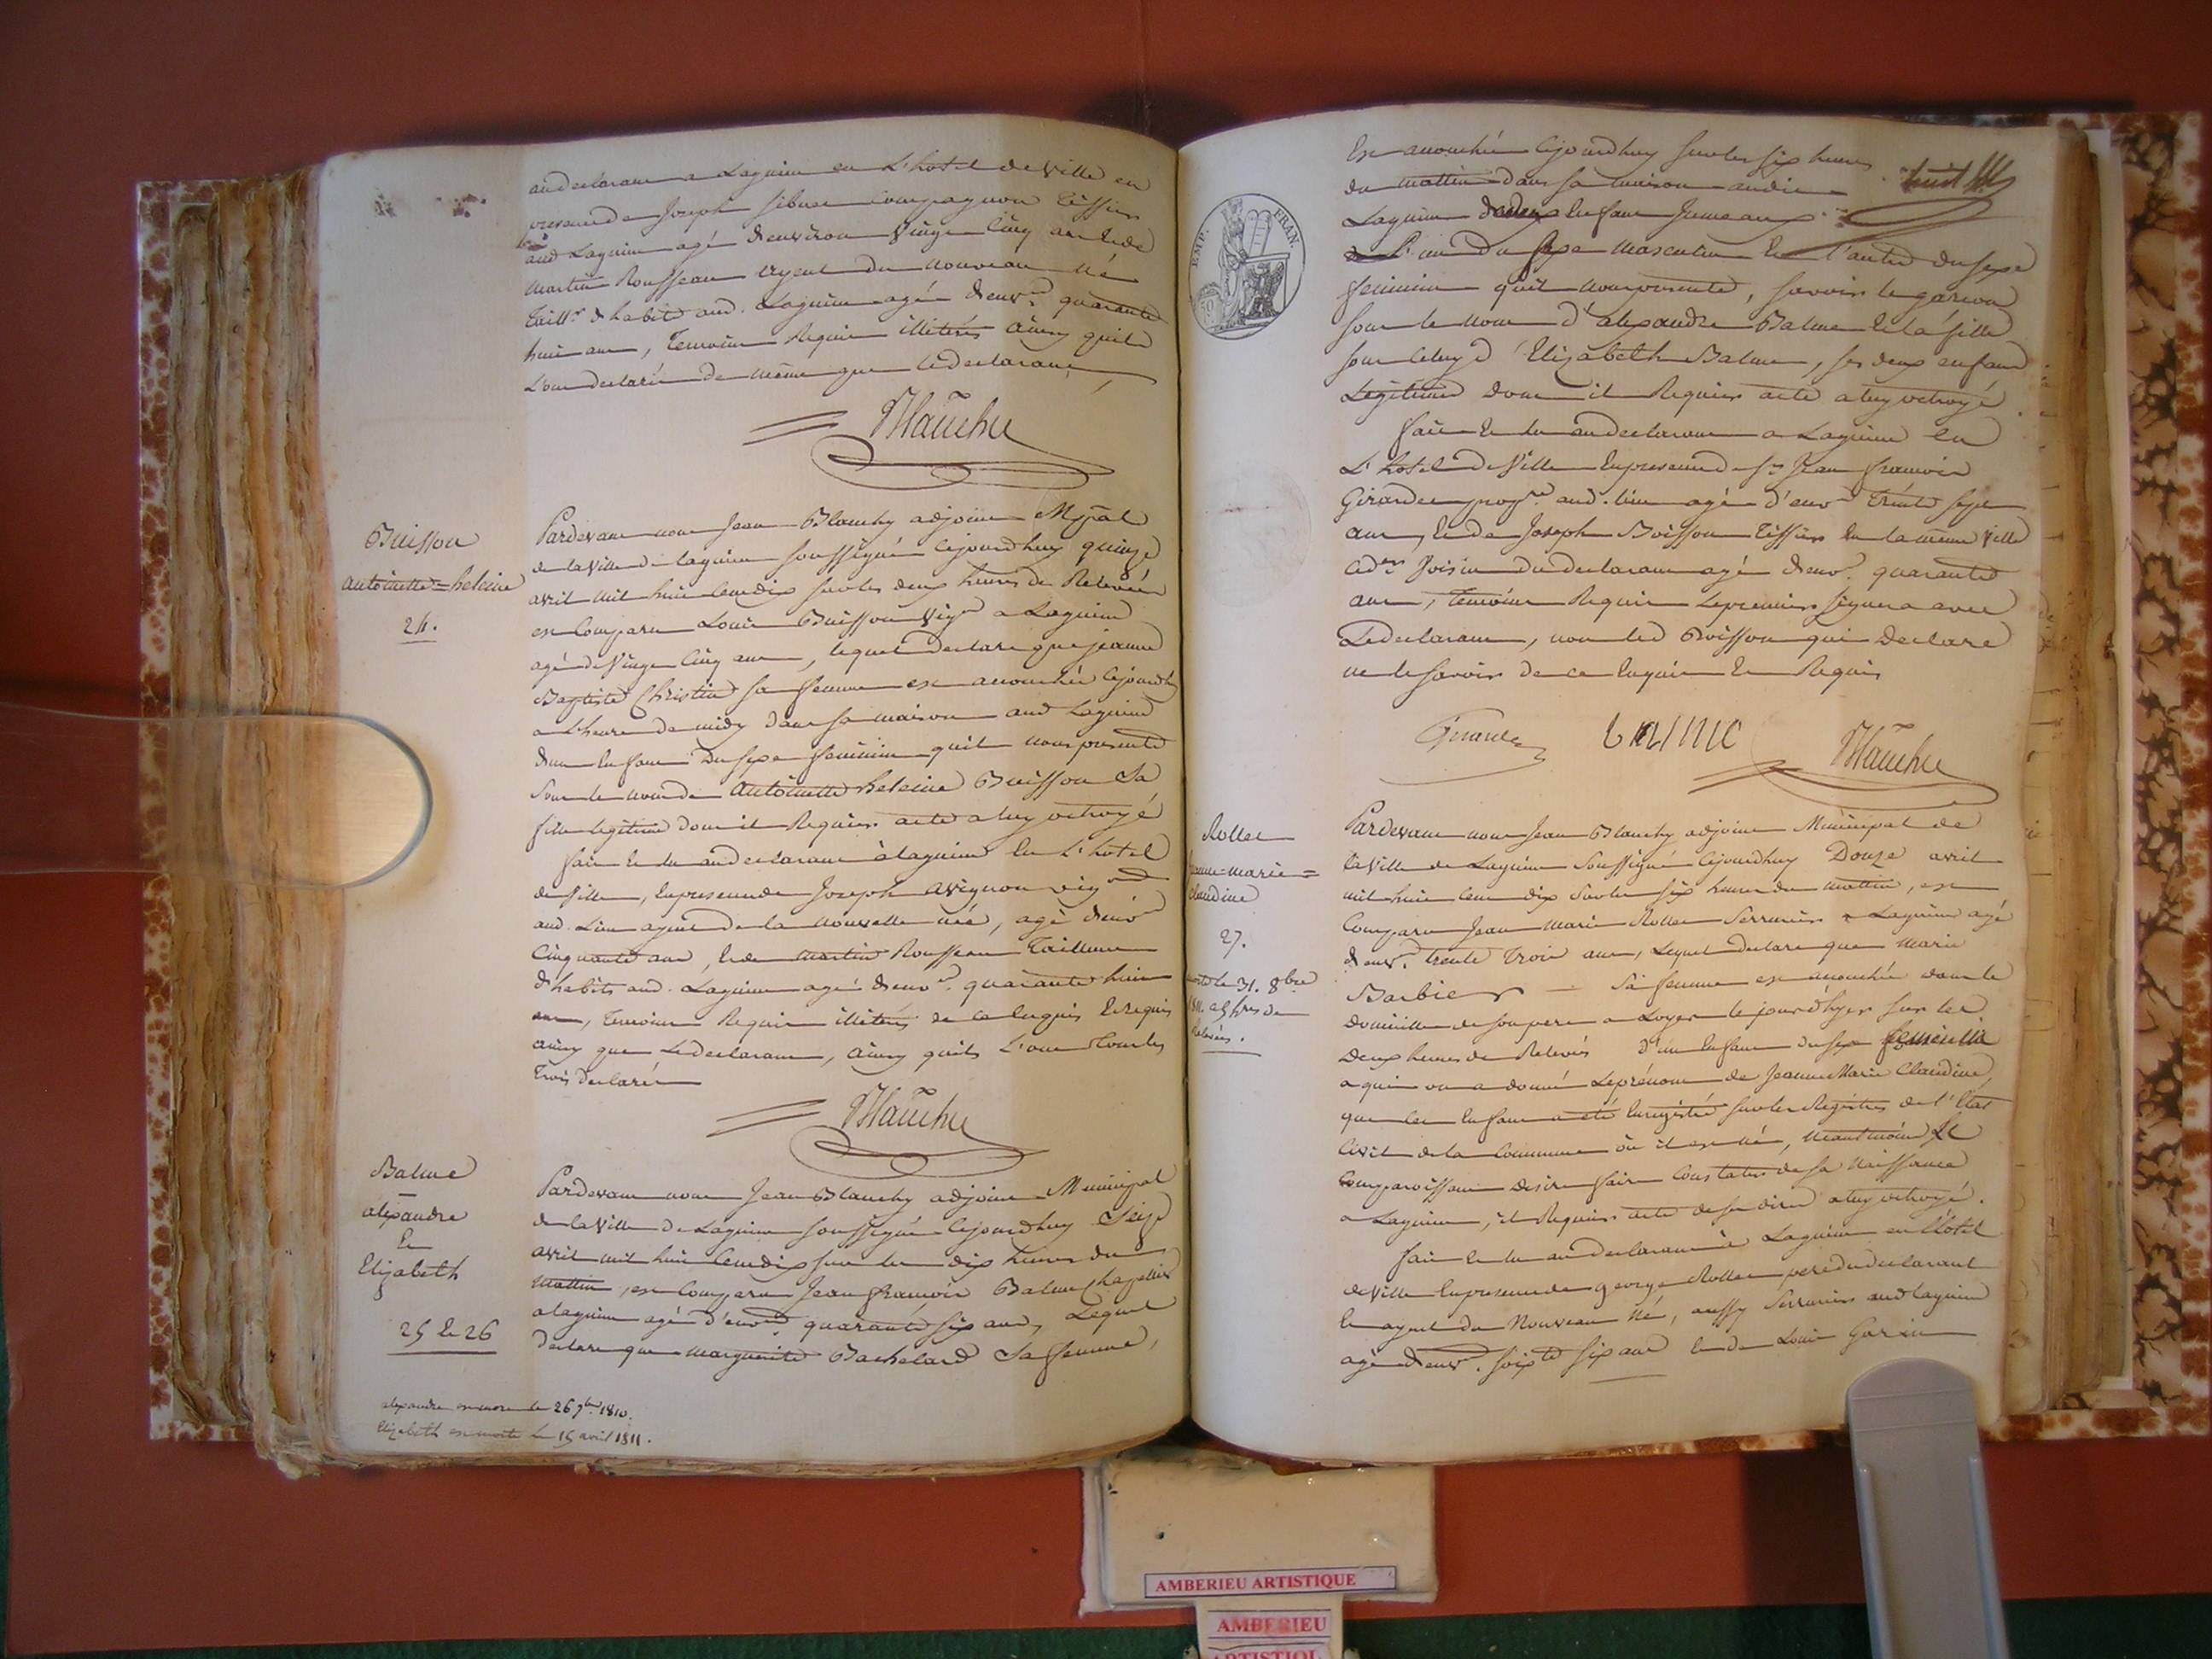 au declarant a Lagnieu en L'hotel de Ville en
presence de Joseph sibuet compagnon Tissier
aud Lagnieu agé d'environ Vingt Cinq ans et de
Martin Rousseau ayeul du nouveau né
Taillr d'habits aud. Lagnieu agé d'envn quarante
huit ans, Temoins Requis illiterés ainsy qu'ils
L'ont declaré de même que le declarant
Blanchy
Buisson
antoinette=heleine
24.
Pardevant nous Jean Blanchy adjoint Mpal
de la Ville de lagnieu soussigné Cejourdhuy quinze
avril mil huit Cent dix sur les deux heures de Relevée
est Comparu Louis Buisson Vign a Lagnieu
agé de Vingt Cinq ans, lequel declare que jeanne
Baptiste Christin sa femme est accouchée Cejourdhuy
a L'heure de midy dans sa maison aud Lagnieu
d'un Enfant Du sexe feminin qu'il nous presente
sous le nom de Antoinette heleine Buisson Sa
fille legitime dont il Requiert acte a luy octroyé
fait et lu au declarant à lagnieu En L'hotel
de Ville, En presence de Joseph avignon vign
aud. Lieu ayeul de la nouvelle née, agé d'env
Cinquante ans, et de Martin Rousseau Tailleur
d'habits aud. Lagnieu agé d'env. quarante huit
ans, Temoins Requis illiterés de ce Enquis Et requis
ainsy que Le declarant, ainsy qu'ils L'ont Tous les
Trois declaré
Blanchy
Balme
alexandre
Et
Elizabeth
25 Et 26
Pardevant nous Jean Blanchy adjoint Municipal
de la Ville de Lagnieu soussigné Cejourdhuy Seize
avril mil huit Cent dix sur les dix heures du
Mattin, est Comparu Jean françois Balme Chapellier
a lagnieu agé d'env. quarante six ans, Lequel
declare que Marguerite Bachelard Sa femme,
alexandre est mort le 26 7bre 1810.
Elizabeth est morte le 15 avril 1811.
EMP. FRAN.
Est accouchée Cejourdhuy sur les six heures
du mattin dans sa maison audit
Lagnieu de deux Enfant Jumeaux
L'un Du sexe masculin Et l'autre du sexe
feminin qu'il nous presente, savoir le garcon
sous le nom d'alexandre Balme Et la fille
sous Celuy d'Elizabeth Balme, ses deux enfant
Legitimes dont il Requiert acte a luy octroyé
fait Et lu au declarant a Lagnieu En
L'hotel de Ville En presence de Sr Jean françois
Girardet aud. lieu agé d'env Trente sept
ans, Et de Joseph Boisson Tissier En la même Ville
Voisin du declarant agé d'env. quarante
ans, Temoins Requis Le premier signera avec
Le declarant, non led Boisson qui Declare
ne le savoir de ce Enquis Et Requis
Girardet Balme Blanchy
Rollet
jeanne-marie=
claudine
27.
morte le 31. 8bre
1811. a 5 hres de
Relevée.
Pardevant nous Jean Blanchy adjoint Municipal de
la Ville de Lagnieu Soussigné Cejourdhuy Douze avril
mil huit Cent dix Sur les six heures du mattin, est
Comparu Jean Marie Rollet Serrurier a Lagnieu agé
d'env. trente Trois ans, Lequel declare que Marie
Barbier sa femme est accouchée dans le
Domicille de son pere a Loyes le jourd'hyer sur les
Deux heures de Relevée d'un Enfant du sexe feminin
a qui on a donné Le prénom de Jeanne Marie Claudine,
que cet Enfant a été Enregistré sur les Registres de l'Etat
Civil de la Commune où il est né, Neantmoins Le
Comparoissant desire faire Constater de sa Naissance
a Lagnieu, il Requiert acte de son dire a luy octroyé.
fait Et lu au declarant à Lagnieu en L'hôtel
de Ville En presence de george Rollet pere du declarant
Et ayeul du Nouveau Né, aussy Serrurier aud lagnieu
agé d'env. soixte six ans Et de Louis Garin
AMBERIEU ARTISTIQUE
AMBERIEU
ARTISTIQU